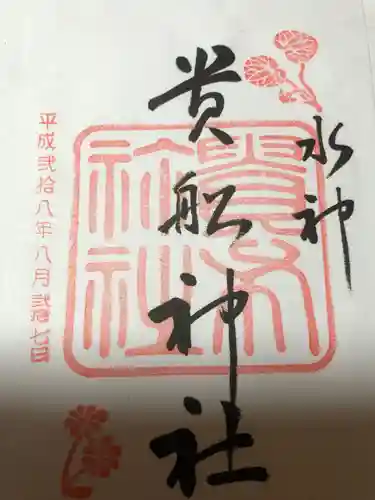 水神
貴船神社
平成弐拾八年八月弐拾七日